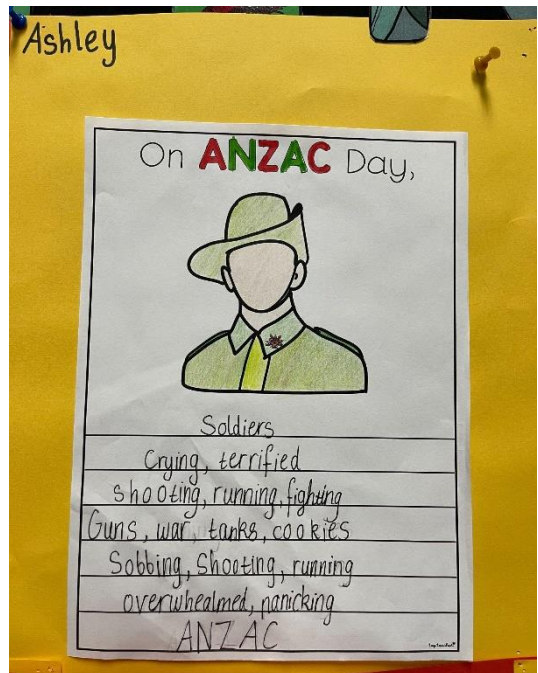 Ashley
On ANZAC Day,
Soldiers
Crying, terrified
shooting, running, fighting
Guns, war, tanks, cookies
Sobbing, Shooting, running
overwhealmed, panicking
ANZAC